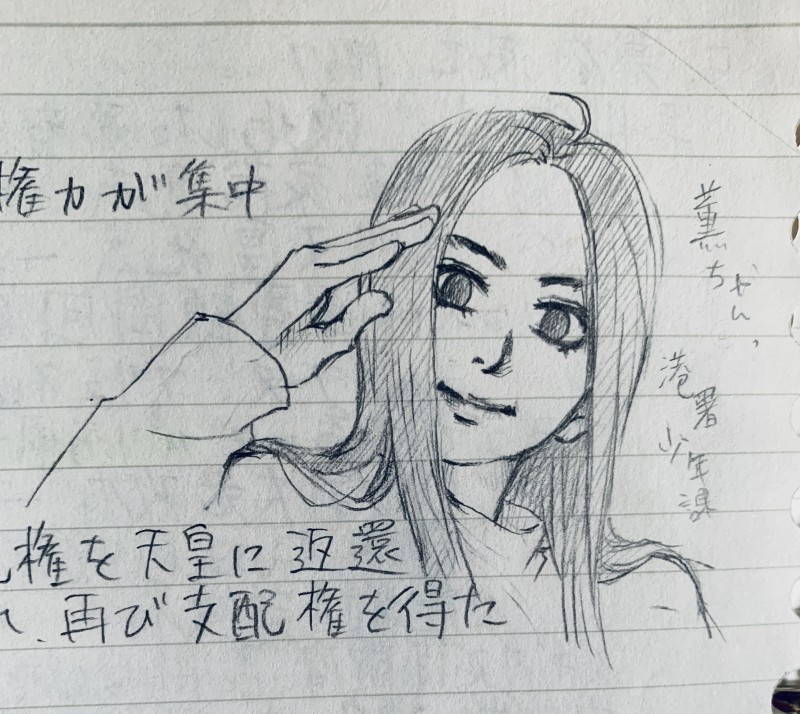 権力が集中
権を天皇に返還
、再び支配権を得た
薫ちゃん、
港署
少年課